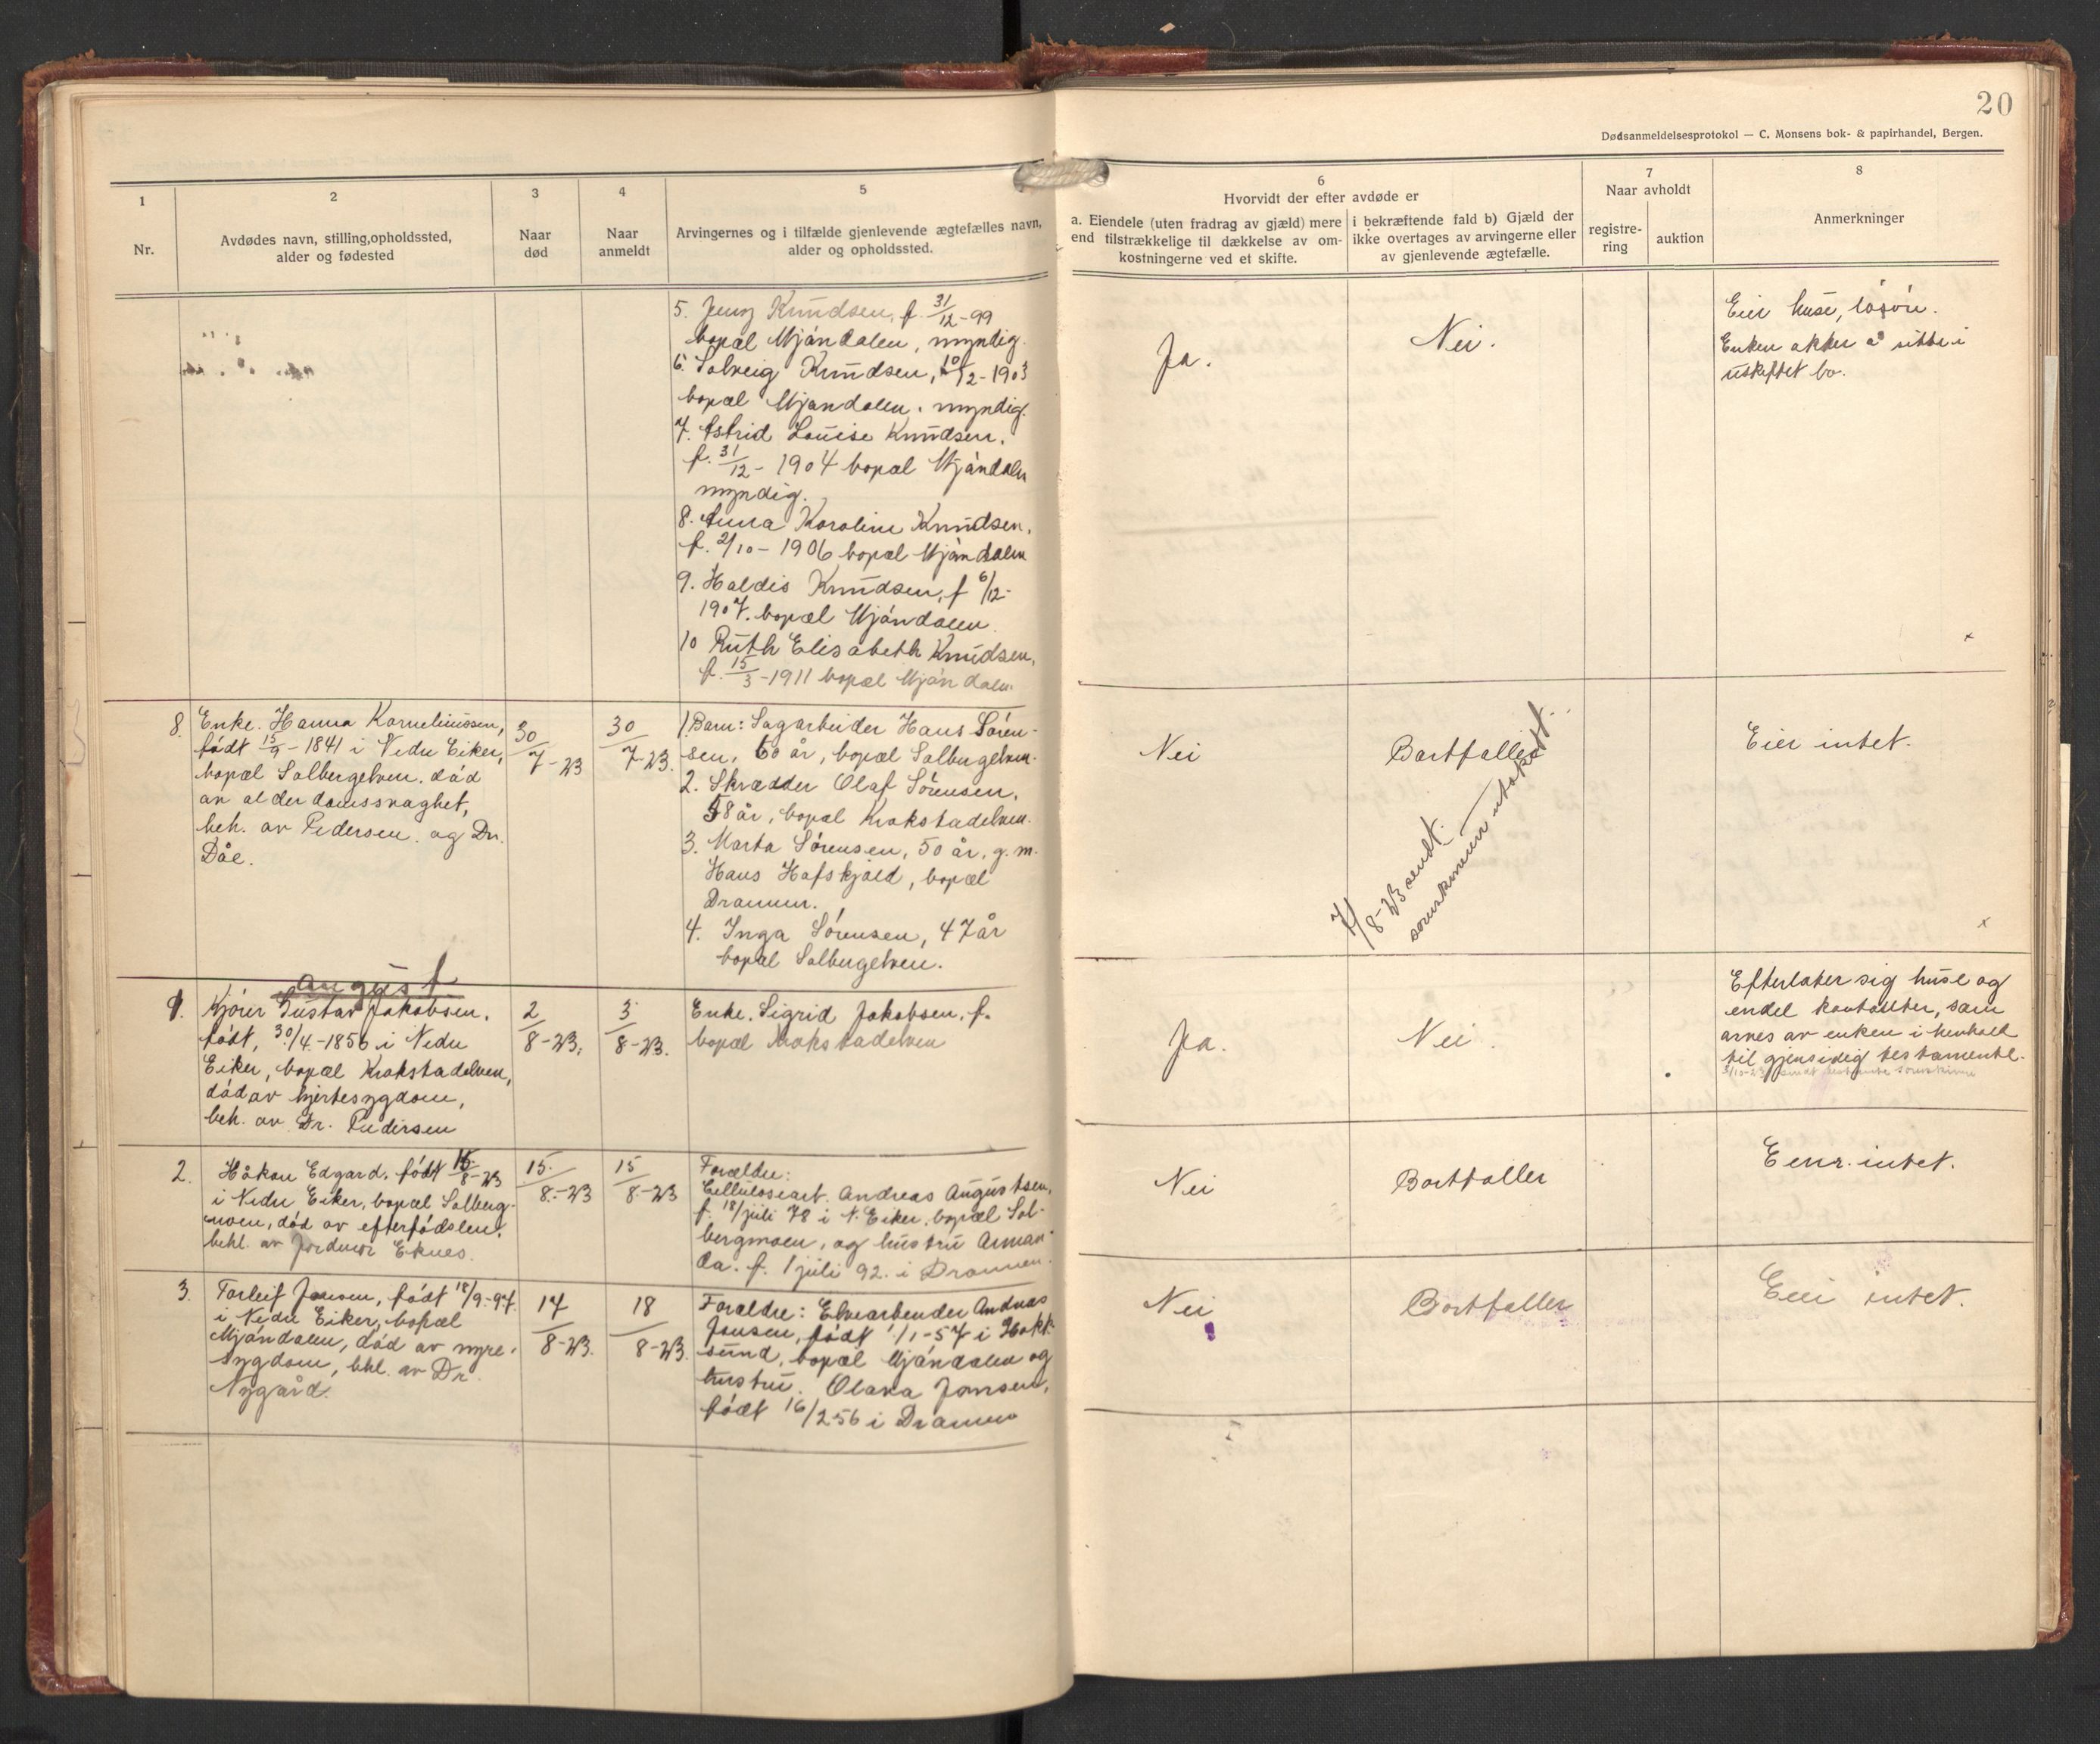 20
Dødsanmeldelsesprotokol — C. Monsens bok- & papirhandel, Bergen.
1
Nr.
2
Avdødes navn, stilling, opholdssted,
alder og fødested
3
Naar
død
4
Naar
anmeldt
5
Arvingernes og i tilfælde gjenlevende ægtefælles navn,
alder og opholdssted.
6
Hvorvidt der efter avdøde er
a. Eiendele (uten fradrag av gjæld) mere
end tilstrækkelige til dækkelse av om-
kostningerne ved et skifte.
i bekræftende fald b) Gjæld der
ikke overtages av arvingerne eller
av gjenlevende ægtefælle.
7
Naar avholdt
registre-
ring
auktion
8
Anmerkninger
5. Jenny Knudsen, f. 31/12-99
bopæl Mjøndalen, myndig.
6. Solveig Knudsen, 10/12-1903
bopæl Mjøndalen. myndig.
7. Astrid Louise Knudsen.
f. 31/12- 1904 bopæl Mjøndalen
myndig.
8. Anna Karoline Knudsen.
f. 2/10- 1906 bopæl Mjøndalen
9. Haldis Knudsen, f 6/12-
1907. bopæl Mjøndalen.
10 Ruth Elisabeth Knudsen,
f. 15/3-1911 bopæl Mjøndalen.
Ja.
Nei.
Eier huse, løsøre.
Enken akter å sitte i
uskiftet bo.
8. Enke. Hanna Korneliussen,
født 15/9-1841 i Nedre Eiker,
bopæl Solbergelven. død
av alderdomssvaghet,
beh. av Pedersen og Dr.
Dåe.
30/7-23
30/7-23.
1. Barn: Sagarbeider Hans Søren-
sen, 60 år, bopæl Solbergelven.
2. Skrædder Olaf Sørensen,
58 år, bopæl Krokstadelven.
3. Marta Sørensen, 50 år, g. m.
Hans Hafskjold, bopæl
Drammen.
4. Inga Sørensen, 47 år
bopæl Solbergelven.
Nei
Bortfaller
7/8-23 sendt
sorenskriveren
Eier intet.
August
1. Kjører Gustav Jakobsen.
født, 30/4-1856 i Nedre
Eiker, bopæl Krokstadelven,
død av hjertesygdom,
beh. av Dr. Pedersen
2/8-23.
3/8-23.
Enke. Sigrid Jakobsen, f.
bopæl Krokstadelven
Ja.
Nei.
Efterlater sig huse og
endel kontanter, som
arves av enken i henhold
til gjensidig testamente.
2. Håkon Edgard, født 15/8-23
i Nedre Eiker, bopæl Solberg-
moen, død av efterfødslen,
behl. av Jordmor Eknes.
15/8-23
15/8-23
Forældre:
Cellulosearb. Andreas Augustsen,
f. 18/juli 78 i N. Eiker, bopæl Sol-
bergmoen, og hustru Aman-
da. f. 1 juli 92. i Drammen.
Nei
Bortfaller
Eier intet.
3. Torleif Jonsen, født 18/9-97.
i Nedre Eiker, bopæl
Mjøndalen, død av nyre-
sygdom, bhl. av Dr.
Nygård.
17/8-23.
18/8-23.
Forældre: Elvearbeider Andreas
Jonsen, født 1/1-57 i Hokk-
sund, bopæl Mjøndalen og
hustru. Olava Jonsen,
født 16/2 56 i Drammen
Nei
Bortfaller
Eier intet.